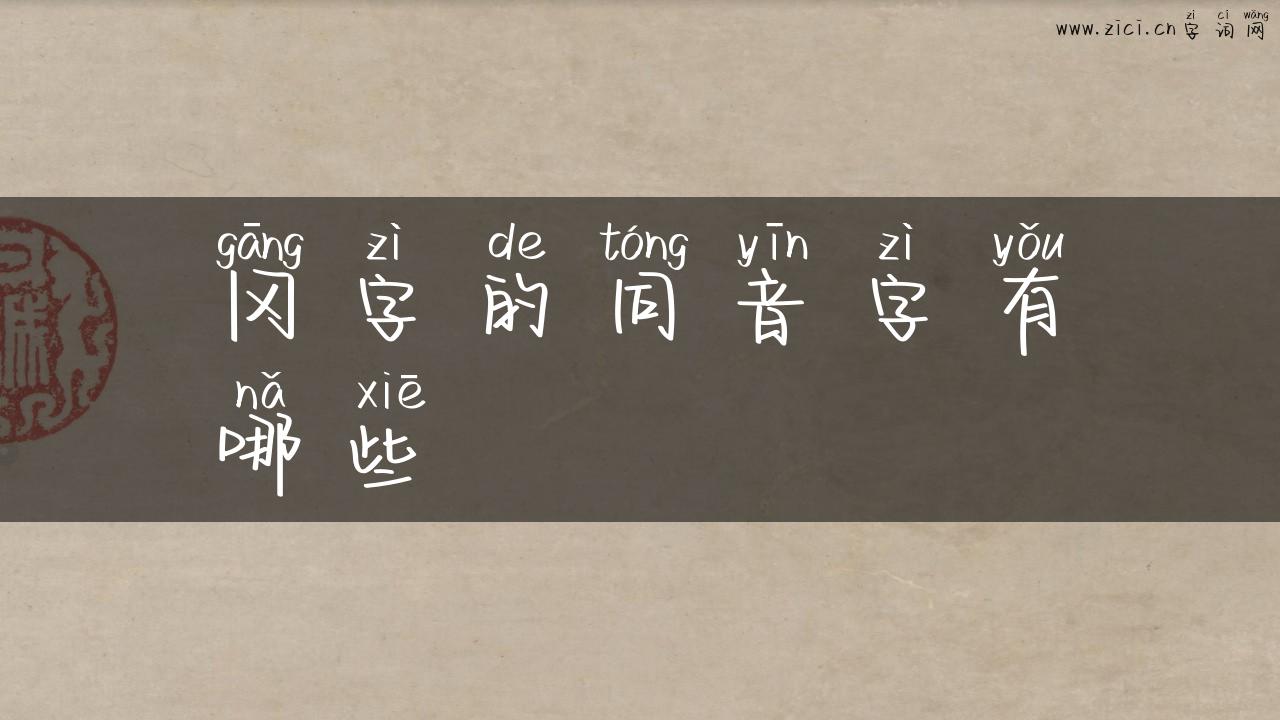 zì cí wǎng
www.zici.cn 字 词 网
gāng zì de tóng yīn zì yǒu
冈 字 的 同 音 字 有
nǎ xiē
哪 些